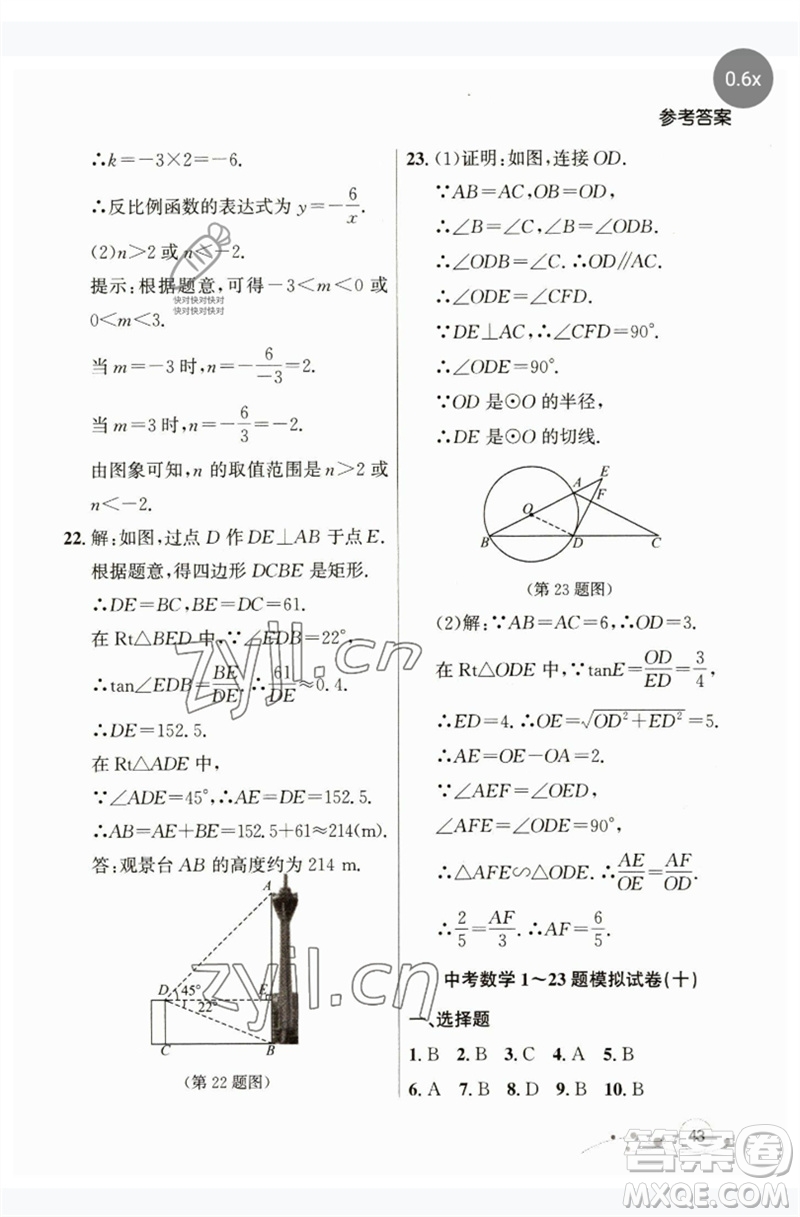 0.6x
参考答案
∴k=-3×2=-6.
∴反比例函数的表达式为 y=-6/x.
(2)n>2 或 n<-2.
提示:根据题意,可得-3<m<0 或
0<m<3.
当 m=-3 时,n=-6/-3=2.
当 m=3 时,n=-6/3=-2.
由图象可知,n 的取值范围是 n>2 或
n<-2.
22. 解:如图,过点 D 作 DE⊥AB 于点 E.
根据题意,得四边形 DCBE 是矩形.
∴DE=BC,BE=DC=61.
在 Rt△BED 中,∵∠EDB=22°,
∴tan∠EDB=BE/DE.∴61/DE≈0.4.
∴DE=152.5.
在 Rt△ADE 中,
∵∠ADE=45°,∴AE=DE=152.5.
∴AB=AE+BE=152.5+61≈214(m).
答:观景台 AB 的高度约为 214 m.
A
D
45°
22°
E
C
B
(第 22 题图)
23. (1)证明:如图,连接 OD.
∵AB=AC,OB=OD,
∴∠B=∠C,∠B=∠ODB.
∴∠ODB=∠C.∴OD∥AC.
∴∠ODE=∠CFD.
∵DE⊥AC,∴∠CFD=90°.
∴∠ODE=90°.
∵OD 是⊙O 的半径,
∴DE 是⊙O 的切线.
E
A
F
O
B
D
C
(第 23 题图)
(2)解:∵AB=AC=6,∴OD=3.
在 Rt△ODE 中,∵tanE=OD/ED=3/4,
∴ED=4.∴OE=√(OD²+ED²)=5.
∴AE=OE-OA=2.
∵∠AEF=∠OED,
∠AFE=∠ODE=90°,
∴△AFE∽△ODE.∴AE/OE=AF/OD.
∴2/5=AF/3.∴AF=6/5.
中考数学 1～23 题模拟试卷(十)
一、选择题
1. B 2. B 3. C 4. A 5. B
6. A 7. B 8. D 9. B 10. B
43
快对快对快对
快对快对快对
zyjl.cn
zyjl.cn
答案卷
MXQE.COM